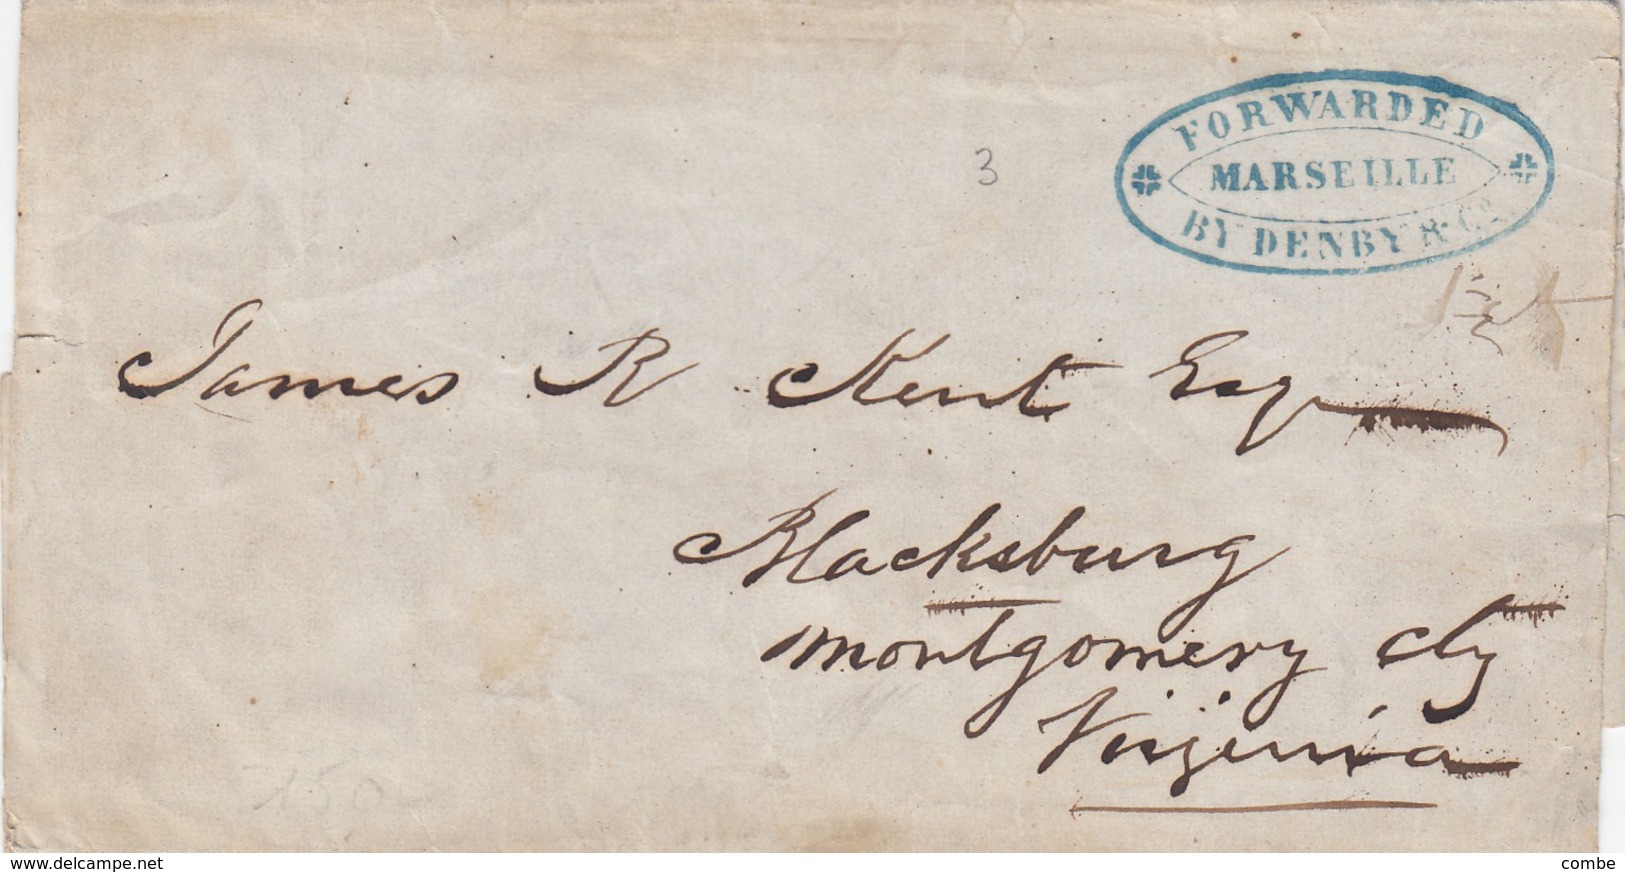 FORWARDED
MARSEILLE
BY DENBY & Co.
3
James R Kent Esq
Blacksburg
Montgomery Cty
Virginia
150
www.delcampe.net
combe